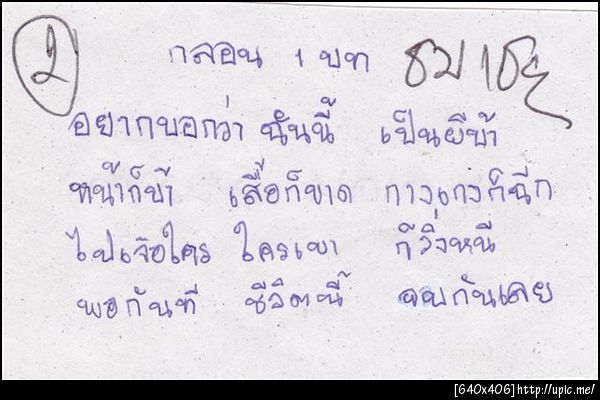 2
กลอน 1 บท
อยากบอกว่า ฉันนี้ เป็นผีบ้า
หน้าก็บ้า เสื้อก็ขาด กางเกงก็ฉีก
ไปเจอใคร ใครเขา ก็วิ่งหนี
พอกันที ชีวิตนี้ จบกันเลย
[640x406] http://upic.me/